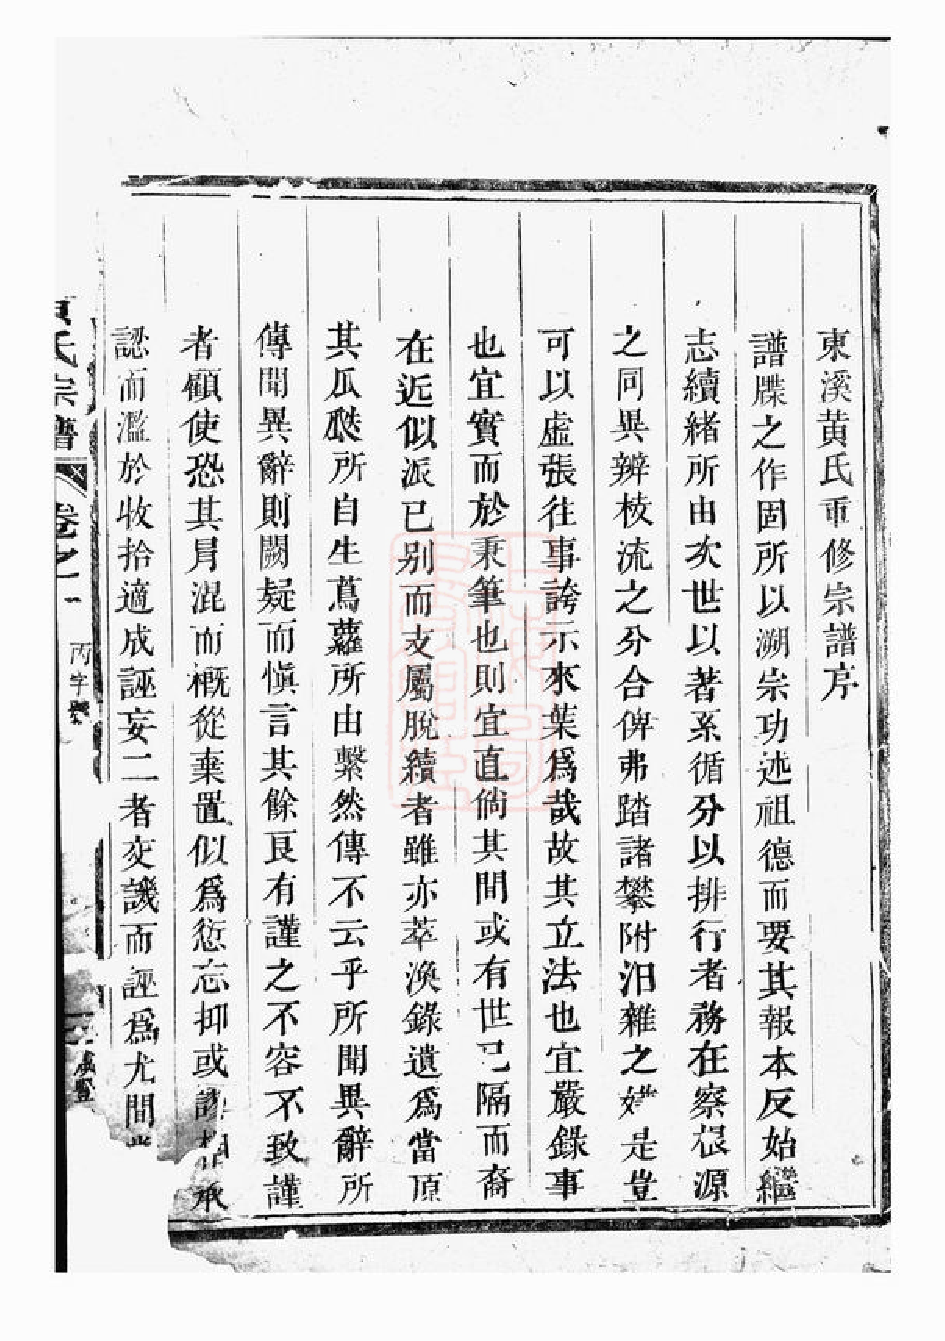 東溪黄氏重修宗譜序
譜牒之作固所以溯宗功述祖德而要其報本反始繼
志續緒所由次世以著系循分以排行者務在察根源
之同異辨枝流之分合俾弗踏諸攀附汨雜之嫌是豈
可以虛張往事誇示來葉爲哉故其立法也宜嚴錄事
也宜實而於秉筆也則宜直倘其間或有世已隔而裔
在近似派已别而支屬脫續者雖亦萃渙錄遺爲當頂
其瓜瓞所自生蔦蘿所由繫然傳不云乎所聞異辭所
傳聞異辭則闕疑而慎言其餘良有謹之不容不致謹
者顧使恐其冐混而槪從棄置似爲愆忘抑或承
認而濫於收拾適成誣妄二者交譏而誣爲尤間
氏宗譜
卷之一
丙字號